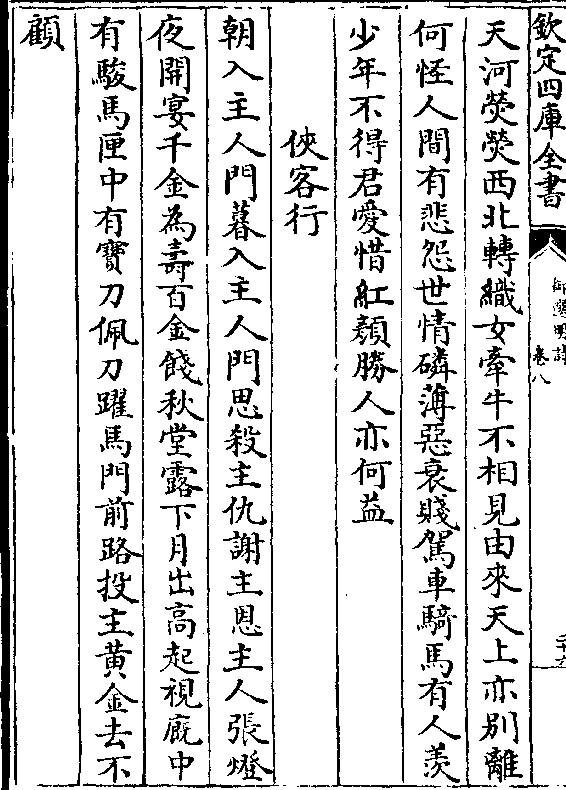 欽定四庫全書
御選明詩
卷八
天河熒熒西北轉織女牽牛不相見由來天上亦別離
何怪人間有悲怨世情磷薄惡衰賤駕車騎馬有人羨
少年不得君愛惜紅顏勝人亦何益
俠客行
朝入主人門暮入主人門思殺主仇謝主恩主人張燈
夜開宴千金為壽百金餞秋堂露下月出高起視廐中
有駿馬匣中有寶刀佩刀躍馬門前路投主黃金去不
顧